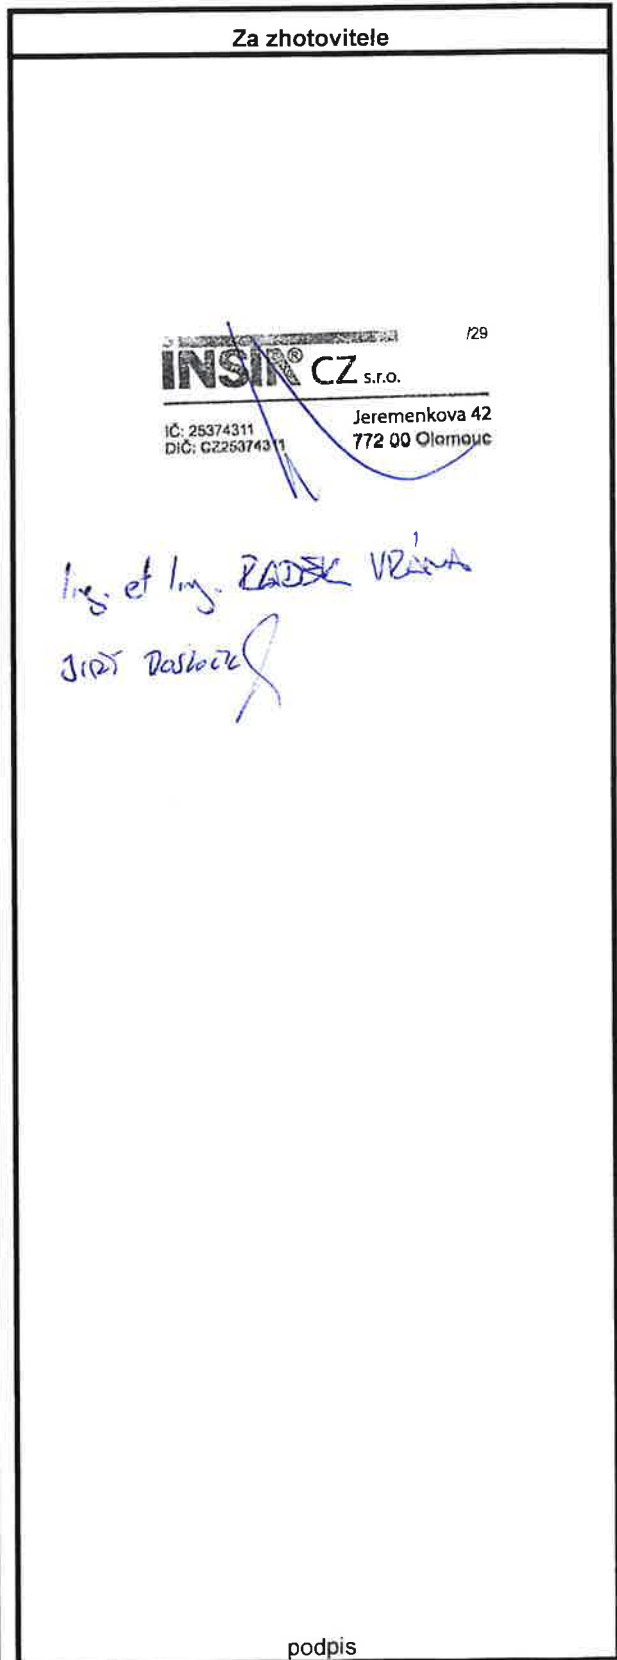 Za zhotovitele
/29
INSIR® CZ s.r.o.
IČ: 25374311
DIČ: CZ25374311
Jeremenkova 42
772 00 Olomouc
Ing. et Ing. RADEK VRÁNA
JIŘÍ
podpis